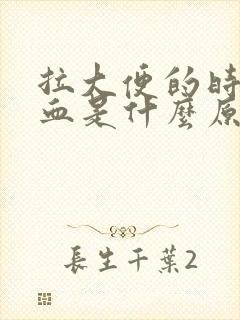 拉大便的時
血是什麼原
長生千葉2